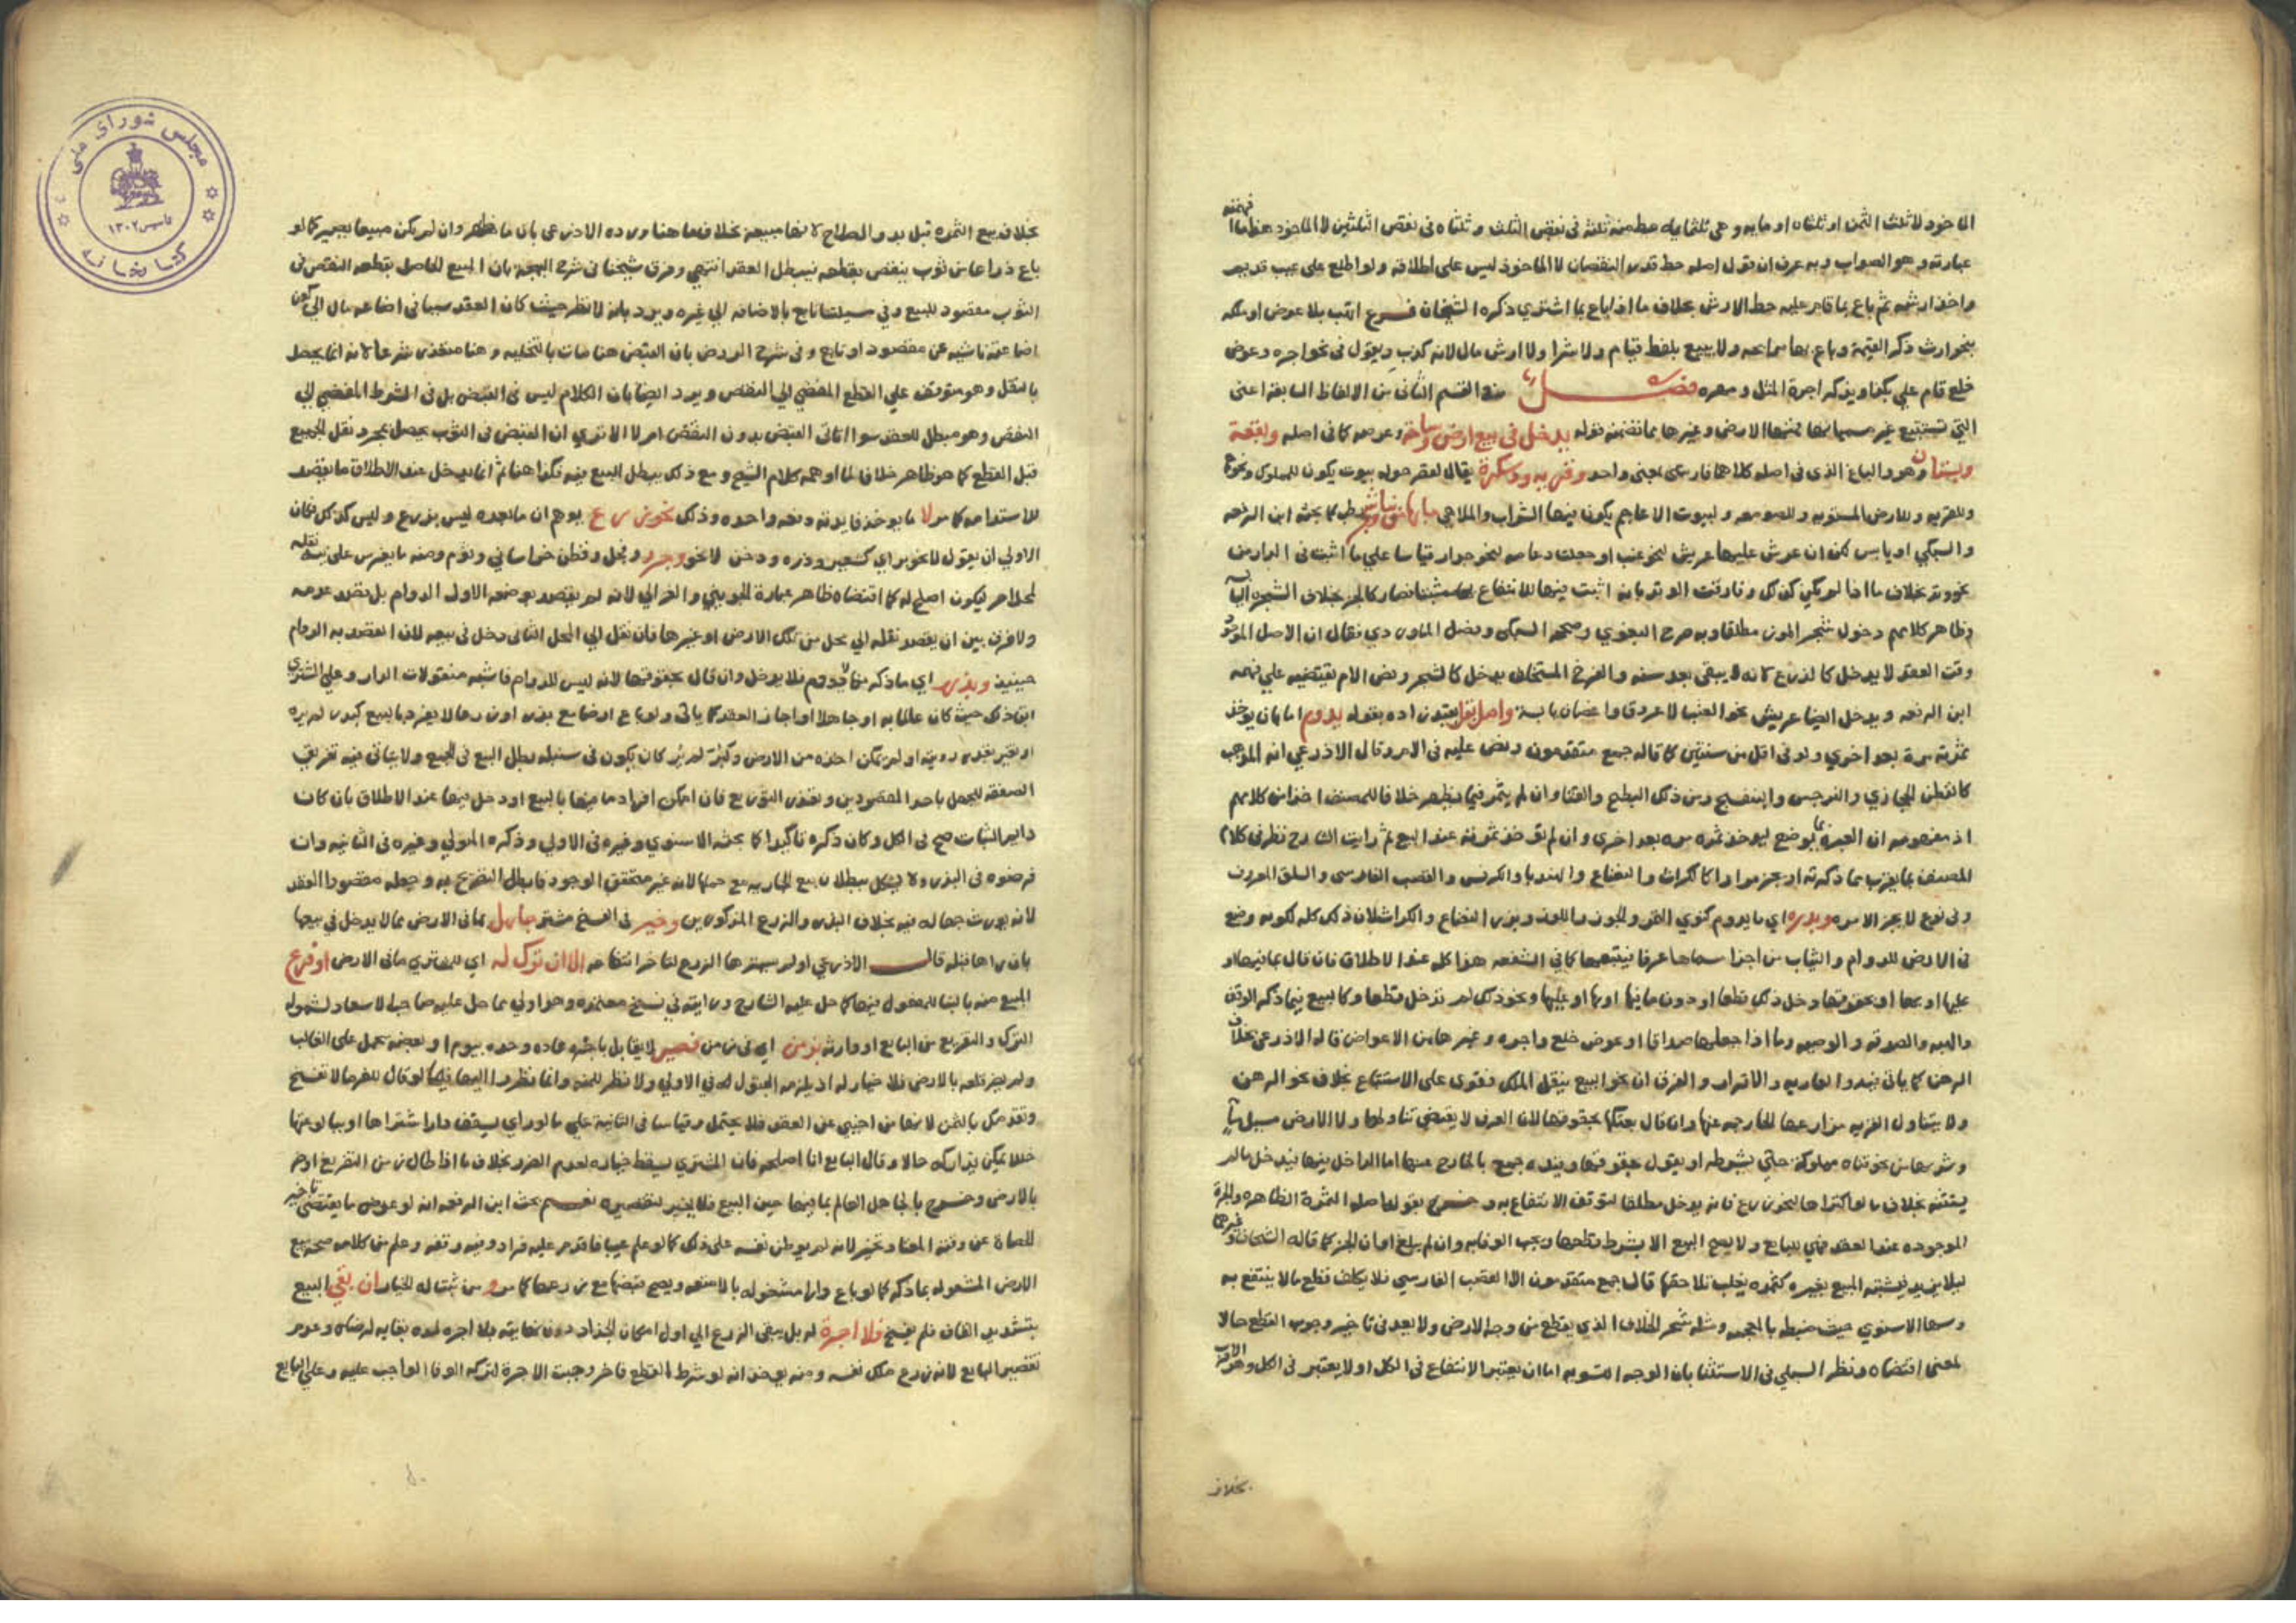 الماخوذ لا ثلث الثمن او ثلثاه او مايه وهي ثلثمايه حط منه ثلثه في نقص الثلث و ثلثاه في نقص الثلثين لا الماخوذ هذا ما
عبارته وهو الصواب وبه عرف ان قول اصله حط قدر النقصان لا الماخوذ ليس على اطلاقه ولو اطلع على عيب قديم
واخذ ارشه ثم باع بما قام عليه حط الارش بخلاف ما اذا باع بما اشتري ذكره الشيخان فرع اتهب بلا عوض او ملكه
بنحو ارث ذكر القيمة وباع بها مرابحه ولا يبيع بلفظ قيام ولا شرا ولا راس مال لانه كذب ويقول في نحو اجره وعوض
خلع قام علي بكذا ويذكر اجرة المثل ومهره فصل من القسم الثاني من الالفاظ السابقه اعني
التي تستتبع غير مسمياتها فمنها الارض وغيرها مما تضمنه قوله يدخل في بيع ارض وساحه وعرصه كما في اصله وبقعة
وبستان وهو والباغ الذي في اصله كلاهما فارسي بمعنى واحد وقريه ودسكرة يقال لقصر حوله بيوت يكون للملوك ونحوهم
وللقريه وللارض المستويه وللصومعه ولبيوت الاعاجم يكون فيها الشراب والملاهي ما بها من شجر رطب كما بحثه ابن الرفعه
والسبكي او يابس لكن ان عرش عليها عريش لنحو عنب او جعلت دعامه لنحو جدار قياسا علي ما اثبت في الدار من
نحو وتد بخلاف ما اذا لم يكن كذلك وفارقت الوتد بانه اثبت فيها للانتفاع به مثبتا فصار كالجزء بخلاف الشجره اليابسه
وظاهر كلامهم دخول شجر الموز مطلقا وبه صرح البغوي وصححه السبكي وفصل الماوردي فقال ان الاصل الموجود
وقت العقد لا يدخل كالزرع لانه لا يبقى بعد سنه والفرخ المستخلف يدخل كالشجر ونص الام يقتضيه علي ما فهمه
ابن الرفعه ويدخل ايضا عريش نحو العنب لا عروق واغصان يابسة واصل بقل بقيد زاده بقوله يدوم اما بان يوخذ
ثمرته مرة بعد اخري ولو في اقل من سنتين كما قاله جمع متقدمون ونص عليه في الام وقال الاذرعي انه المذهب
كالقطن الحجازي والنرجس والبنفسج ومن ذلك البطيخ والقثا وان لم يثمر فيما يظهر خلافا للمصنف اخذا من كلامهم
اذ مفهومه ان العبره بما يوضع ليوخذ ثمره مره بعد اخري وان لم تؤخذ ثمرته عند البيع ثم رايت الشارح نظر في كلام
المصنف بما يقرب مما ذكرته او يجز مرارا كالكراث والنعناع والهندبا والكرفس والقصب الفارسي والسلق المعروف
وفي نوع لا يجز الا مره وبذره اي ما يدوم كنوي النخل والجوز واللوز وبزر النعناع والكراث لان ذلك كله لكونه وضع
في الارض للدوام والثبات من اجزا مسماها عرفا فيتبعها كما في الشفعه هذا كله عند الاطلاق فان قال بما فيها او
عليها او بها او بحقوقها دخل ذلك قطعا او دون ما فيها او بها او عليها ونحو ذلك لم تدخل قطعا وكالبيع فيما ذكر الوقف
والهبه والصدقه والوصيه وما اذا جعلها صداقا او عوض خلع واجره وغيرها من الاعواض قاله الاذرعي بخلاف
الرهن كما ياتي فيه والعاريه والاقرار والفرق ان نحو البيع ينقل الملك فقوى على الاستتباع بخلاف نحو الرهن
ولا يتناول القريه مزارعها الخارجه عنها وان قال بعتكها بحقوقها لان العرف لا يقتضي تناولها ولا الارض مسيل مآ
وشربها من نحو قناه مملوكة حتي يشرطه او يقول بحقوقها وقيده جمع بالخارج عنها اما الداخل فيها فيدخل ما لم
يستثنه بخلاف ما لو اكتراها لنحو زرع فانه يدخل مطلقا لتوقف الانتفاع به وخرج بقولنا اصله الثمرة الظاهره والجزة
الموجوده عند العقد فهي للبايع ولا يصح البيع الا بشرط قطعها ويجب الوفا به وان لم يبلغ اوان الجز كما قاله الشيخان وغيرهما
ليلا يزيد فيشتبه المبيع بغيره كثمره يغلب تلاحقها قال جمع متقدمون الا القصب الفارسي فلا يكلف قطع ما لا ينتفع به
وسها الاسنوي حيث ضبطه بالمعجمه ومثله شجر الخلاف الذي يقطع من وجه الارض ولا بعد في تاخير وجوب القطع حالا
لمعنى اقتضاه ونظر السبكي في الاستثنا بان الوجه التسويه اما ان يعتبر الانتفاع في الكل او لا يعتبر في الكل وهو الاقرب
بخلاف
بخلاف بيع الثمره قبل بدو الصلاح لانها مبيعه بخلاف ما هنا ورده الاذرعي بان ما ظهر وان لم يكن مبيعا يصير كما لو
باع ذراعا من ثوب ينقص بقطعه فيبطل العقد انتهي وفرق شيخنا في شرح البهجه بان المبيع الحاصل بقطعه النقص في
الثوب مقصود للبيع وفي مسيلتنا تابع بالاضافه الي غيره ويرد بانه لا نظر حيث كان العقد سببا في اضاعه مال الي كون
اضاعته ناشيه عن مقصود او تابع وفي شرح الروض بان القبض هنا متات بالتخليه وهنا متعذر شرعا لانه انما يحصل
بالنقل وهو متوقف علي القطع المفضي الي النقص ويرد ايضا بان الكلام ليس في القبض بل في الشرط المفضي الي
النقص وهو مبطل للعقد سوا اتاتي القبض بدون النقص ام لا الا تري ان القبض في الثوب يحصل بمجرد نقل الجميع
قبل القطع كما هو ظاهر خلافا لما اوهمه كلام الشيخ ومع ذلك يبطل البيع فيه فكذا هنا ثم انما يدخل عند الاطلاق ما يقصد
للاستدامه كما مر لا ما يوخذ فايدته دفعه واحده وذلك نحو زرع يوهم ان ما بعده ليس بزرع وليس كذلك فكان
الاولي ان يقول لا نحو بر اي كشعير وذره ودخن لا نحو وجزر وفجل وقطن خراساني وثوم ومنه ما يغرس على نيه نقله
لمحل اخر ليكون اصلح له كما اقتضاه ظاهر عبارة الجويني والغزالي لانه لم يقصد بوضعه الاول الدوام بل يقصد عدمه
ولا فرق بين ان يقصد نقله الي محل من تلك الارض او غيرها فان نقل الي المحل الثاني دخل في بيعه لان القصد به الدوام
حينيذ وبذره اي ما ذكر مما لا يدوم فلا يدخل وان قال بحقوقها لانه ليس للدوام فاشبه منقولات الدار وعلي المشتري
ابقا ذلك حيث كان عالما به او جاهلا واجاز العقد كما ياتي ولو باع ارضا مع بذر او زرع لا يفرد ببيع كبر لم يره
او تغير بعد رويته او لم يمكن اخذه من الارض وكبر لم ير كان يكون في سنبله بطل البيع في الجميع ولا ياتي فيه تفريق
الصفقه للجهل باحد المقصودين وتعذر التوزيع فان امكن افراد ما فيها بالبيع او دخل فيها عند الاطلاق بان كان
دايم الثبات صح في الكل وكان ذكره تاكيدا كما بحثه الاسنوي وغيره في الاولي وذكره المتولي وغيره في الثانيه وان
فرضوه في البذر ولا يشكل ببطلان بيع الجاريه مع حملها لانه غير متحقق الوجود فابطل التصريح به وجعله مقصودا العقد
لانه يورث جهاله فيه بخلاف البذر والزرع المذكورين وخير في الفسخ مشتر جاهل بما في الارض مما لا يدخل في بيعها
بان رآها قبله قال الاذرعي او لم يسترها الزرع لتاخر انتفاعه الا ان ترك له اي للمشتري ما في الارض او فرغ
المبيع منه بالبنا للمفعول فيهما كما حل عليه الشارح ورايته في نسخ معتمده وهو اولي مما حل عليه صاحب الاسعاد لشموله
الترك والتفريغ من البايع او وارثه بزمن اي في زمن قصير لا يقابل باجره عاده وحده بيوم او بعضه محمل على الغالب
ولم يضر قلعه بالارض فلا خيار له اذ يلزمه القبول له في الاولي ولا نظر للمنه وانما نظروا اليها فيما لو قال للغرما لا تفسخ
ونقدمك بالثمن لانها من اجنبي عن العقد فلا يحتمل وقياسا في الثانية علي ما لو راي بسقف دار اشتراها او ببالوعتها
خللا يمكن تداركه حالا وقال البايع انا اصلحه فان المشتري يسقط خياره لعدم الضرر بخلاف ما اذا طال زمن التفريغ او ضر
بالارض وخرج بالجاهل العالم بما فيها حين البيع فلا يخير لتقصيره نعم بحث ابن الرفعه انه لو عرض ما يقتضي تاخير
الحصاد عن وقته المعتاد تخير لانه لم يوطن نفسه على ذلك كما لو علم عيبا فاقدم عليه فزاد وفيه وقفه وعلم من كلامه صحه بيع
الارض المشغوله بما ذكر كما لو باع دارا مشحونه بالامتعه ويصح قبضها مع زرعها كما مر ومن ثبت له الخيار ان بقي البيع
بتشديد القاف فلم يفسخ فلا اجرة له بل يبقى الزرع الي اول امكان الجذاذ دون نهايته بلا اجره لمده بقايه لرضاه وعدم
تقصير البايع لانه زرع ملك نفسه ومنه يوخذ انه لو شرط القطع فاخر وجبت الاجرة لتركه الوفا الواجب عليه وعلي البايع
مجلس شورای ملی
كتابخانه
١٣٠٢